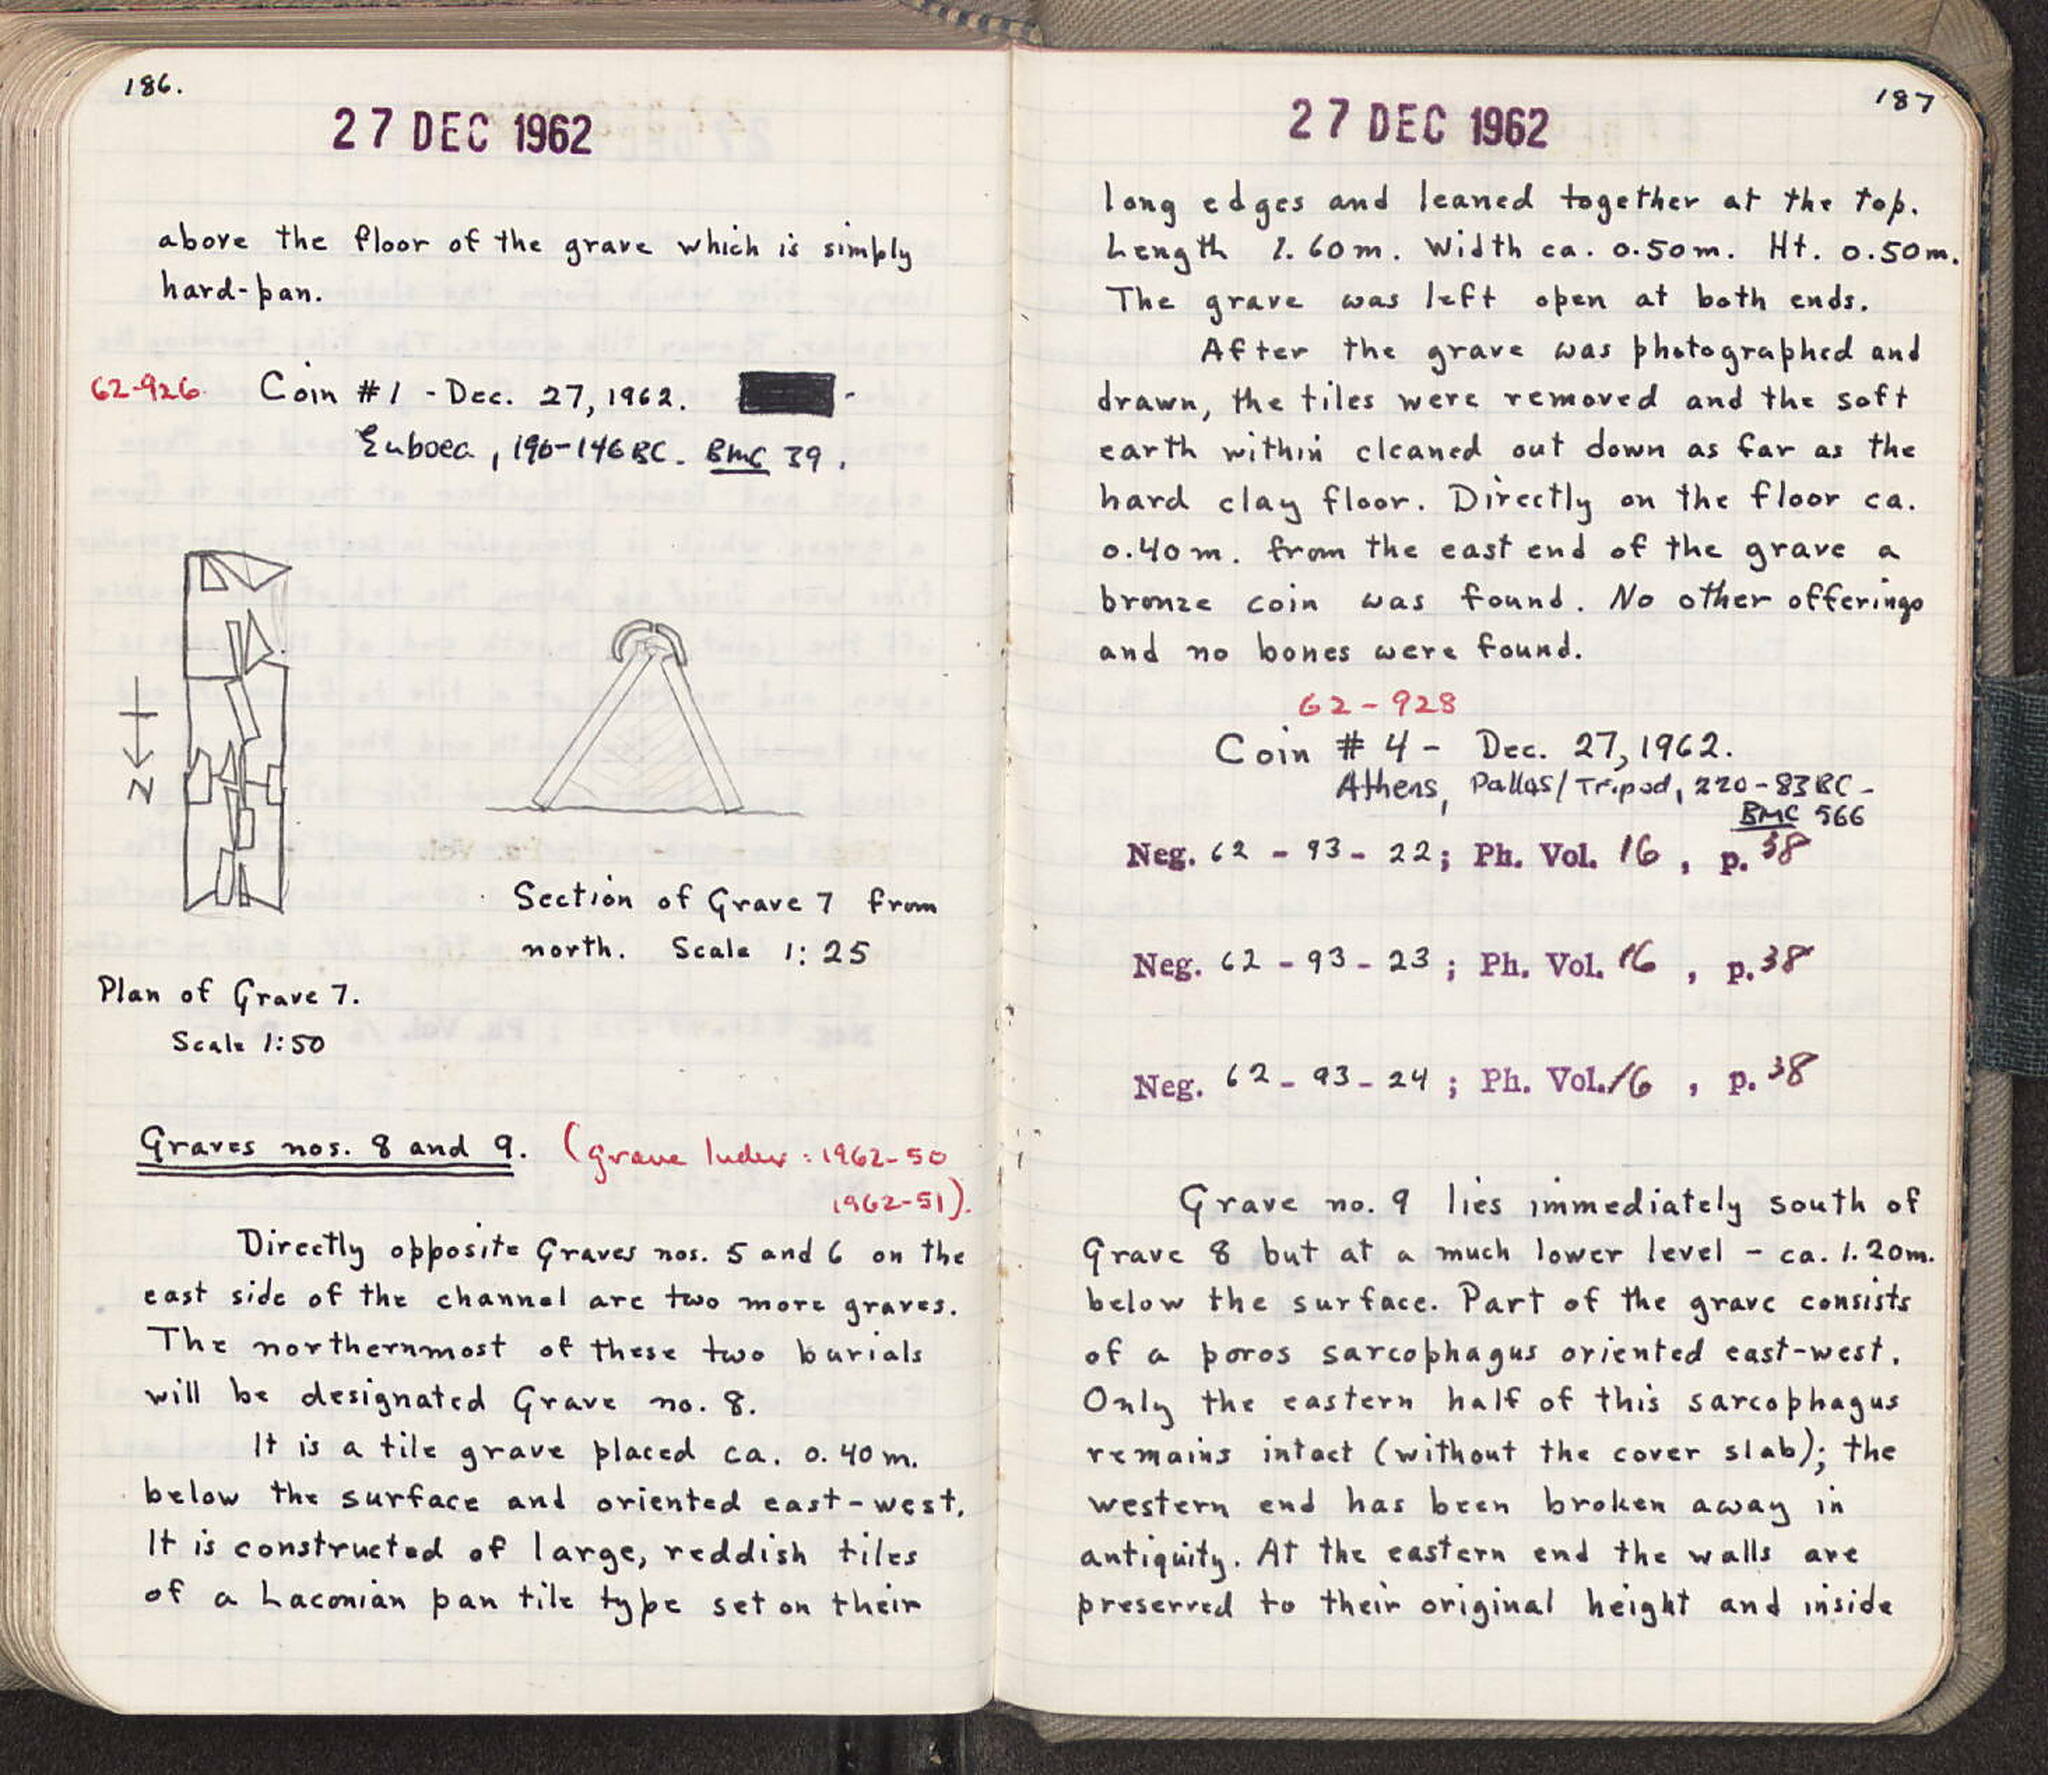 186.
27 DEC 1962
above the floor of the grave which is simply
hard-pan.
62-926 Coin #1 - Dec. 27, 1962.
Euboea, 196-146 BC. BMC 39.
N
Section of Grave 7 from
north. Scale 1:25
Plan of Grave 7.
Scale 1:50
Graves nos. 8 and 9. (grave Index: 1962-50
1962-51).
Directly opposite Graves nos. 5 and 6 on the
east side of the channel are two more graves.
The northernmost of these two burials
will be designated Grave no. 8.
It is a tile grave placed ca. 0.40m.
below the surface and oriented east-west.
It is constructed of large, reddish tiles
of a Laconian pan tile type set on their
187
27 DEC 1962
long edges and leaned together at the top.
Length 1.60m. Width ca. 0.50m. Ht. 0.50m.
The grave was left open at both ends.
After the grave was photographed and
drawn, the tiles were removed and the soft
earth within cleaned out down as far as the
hard clay floor. Directly on the floor ca.
0.40m. from the east end of the grave a
bronze coin was found. No other offerings
and no bones were found.
62-928
Coin #4 - Dec. 27, 1962.
Athens, Pallas/Tripod, 220-83 BC -
BMC 566
Neg. 62-93-22; Ph. Vol. 16, p. 38
Neg. 62-93-23; Ph. Vol. 16, p. 38
Neg. 62-93-24; Ph. Vol. 16, p. 38
Grave no. 9 lies immediately south of
Grave 8 but at a much lower level - ca. 1.20m.
below the surface. Part of the grave consists
of a poros sarcophagus oriented east-west.
Only the eastern half of this sarcophagus
remains intact (without the cover slab); the
western end has been broken away in
antiquity. At the eastern end the walls are
preserved to their original height and inside